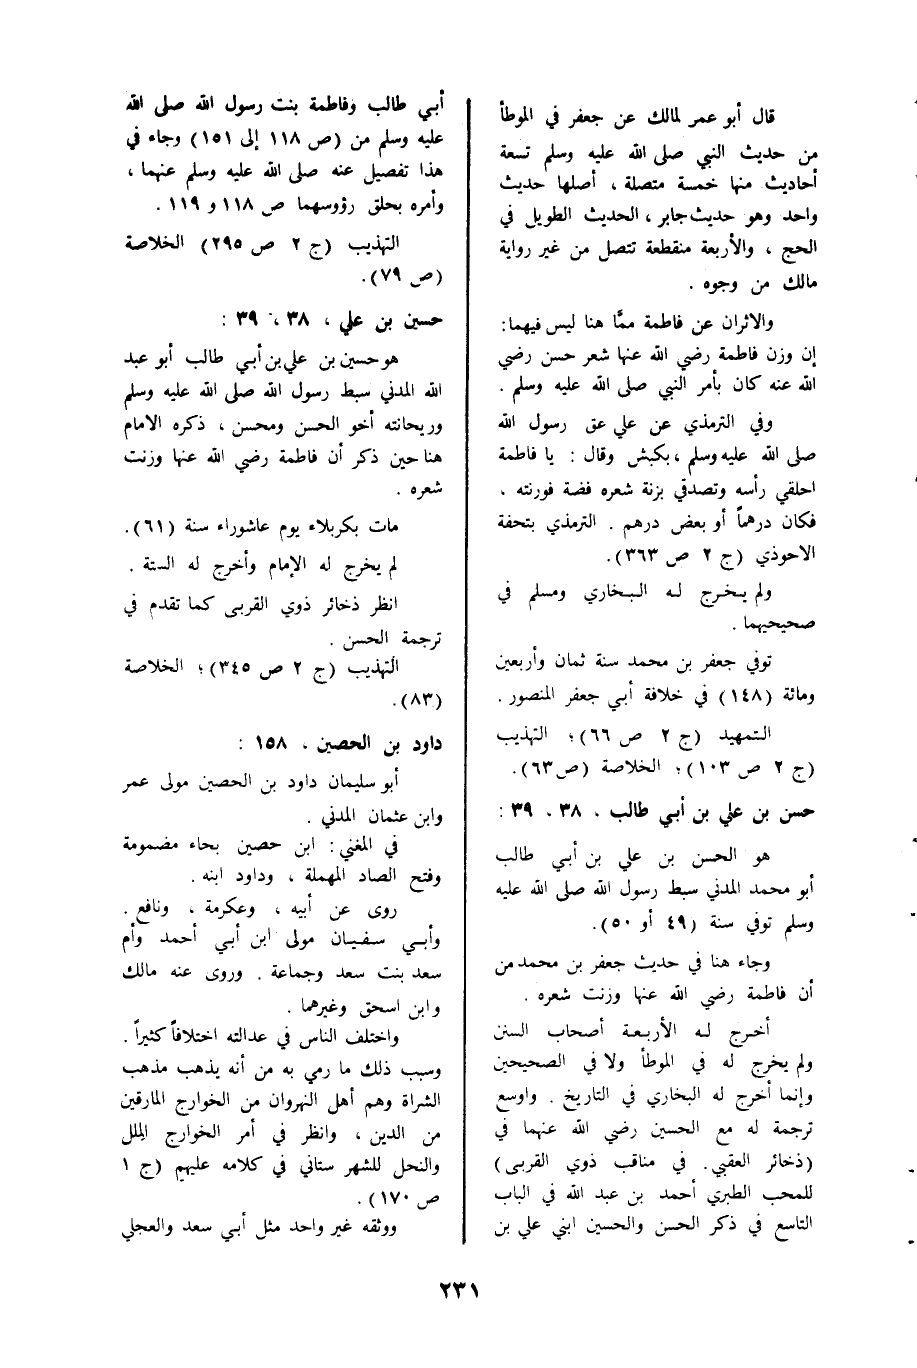 قال أبو عمر لمالك عن جعفر في الموطأ
من حديث النبي صلى الله عليه وسلم تسعة
أحاديث منها خمسة متصلة ، أصلها حديث
واحد وهو حديث جابر ، الحديث الطويل في
الحج ، والأربعة منقطعة تتصل من غير رواية
مالك من وجوه .
والاثران عن فاطمة ممَّا هنا ليس فيهما :
إن وزن فاطمة رضي الله عنها شعر حسن رضي
الله عنه كان بأمر النبي صلى الله عليه وسلم .
وفي الترمذي عن علي عق رسول الله
صلى الله عليه وسلم ، بكبش وقال : يا فاطمة
احلقي رأسه وتصدقي بزنة شعره فضة فوزنته ،
فكان درهماً أو بعض درهم . الترمذي بتحفة
الاحوذي (ج ٢ ص ٣٦٣).
ولم يخرج له البخاري ومسلم في
صحيحيهما .
توفي جعفر بن محمد سنة ثمان وأربعين
ومائة (١٤٨) في خلافة أبي جعفر المنصور .
التمهيد (ج ٢ ص ٦٦)؛ التهذيب
(ج ٢ ص ١٠٣)؛ الخلاصة (ص ٦٣).
حسن بن علي بن أبي طالب ، ٣٨ ، ٣٩ :
هو الحسن بن علي بن أبي طالب
أبو محمد المدني سبط رسول الله صلى الله عليه
وسلم توفي سنة (٤٩ أو ٥٠).
وجاء هنا في حديث جعفر بن محمد من
أن فاطمة رضي الله عنها وزنت شعره .
أخرج له الأربعة أصحاب السنن
ولم يخرج له في الموطأ ولا في الصحيحين
وإنما أخرج له البخاري في التاريخ . واوسع
ترجمة له مع الحسين رضي الله عنهما في
(ذخائر العقبي . في مناقب ذوي القربى)
للمحب الطبري أحمد بن عبد الله في الباب
التاسع في ذكر الحسن والحسين ابني علي بن
أبي طالب وفاطمة بنت رسول الله صلى الله
عليه وسلم من (ص ١١٨ إلى ١٥١) وجاء في
هذا تفصيل عنه صلى الله عليه وسلم عنهما ،
وأمره بحلق رؤوسهما ص ١١٨ و ١١٩ .
التهذيب (ج ٢ ص ٢٩٥) الخلاصة
(ص ٧٩).
حسين بن علي ، ٣٨ ، ٣٩ :
هو حسين بن علي بن أبي طالب أبو عبد
الله المدني سبط رسول الله صلى الله عليه وسلم
وريحانته أخو الحسن ومحسن ، ذكره الامام
هنا حين ذكر أن فاطمة رضي الله عنها وزنت
شعره .
مات بكربلاء يوم عاشوراء سنة (٦١).
لم يخرج له الإمام وأخرج له الستة .
انظر ذخائر ذوي القربى كما تقدم في
ترجمة الحسن .
التهذيب (ج ٢ ص ٣٤٥)؛ الخلاصة
(٨٣).
داود بن الحصين ، ١٥٨ :
أبو سليمان داود بن الحصين مولى عمر
وابن عثمان المدني .
في المغني : ابن حصين بحاء مضمومة
وفتح الصاد المهملة ، وداود ابنه .
روى عن أبيه ، وعكرمة ، ونافع .
وأبي سفيان مولى ابن أبي أحمد وأم
سعد بنت سعد وجماعة . وروى عنه مالك
وابن اسحق وغيرهما .
واختلف الناس في عدالته اختلافاً كثيراً .
وسبب ذلك ما رمي به من أنه يذهب مذهب
الشراة وهم أهل النهروان من الخوارج المارقين
من الدين ، وانظر في أمر الخوارج الملل
والنحل للشهر ستاني في كلامه عليهم (ج ١
ص ١٧٠).
ووثقه غير واحد مثل أبي سعد والعجلي
٢٣١